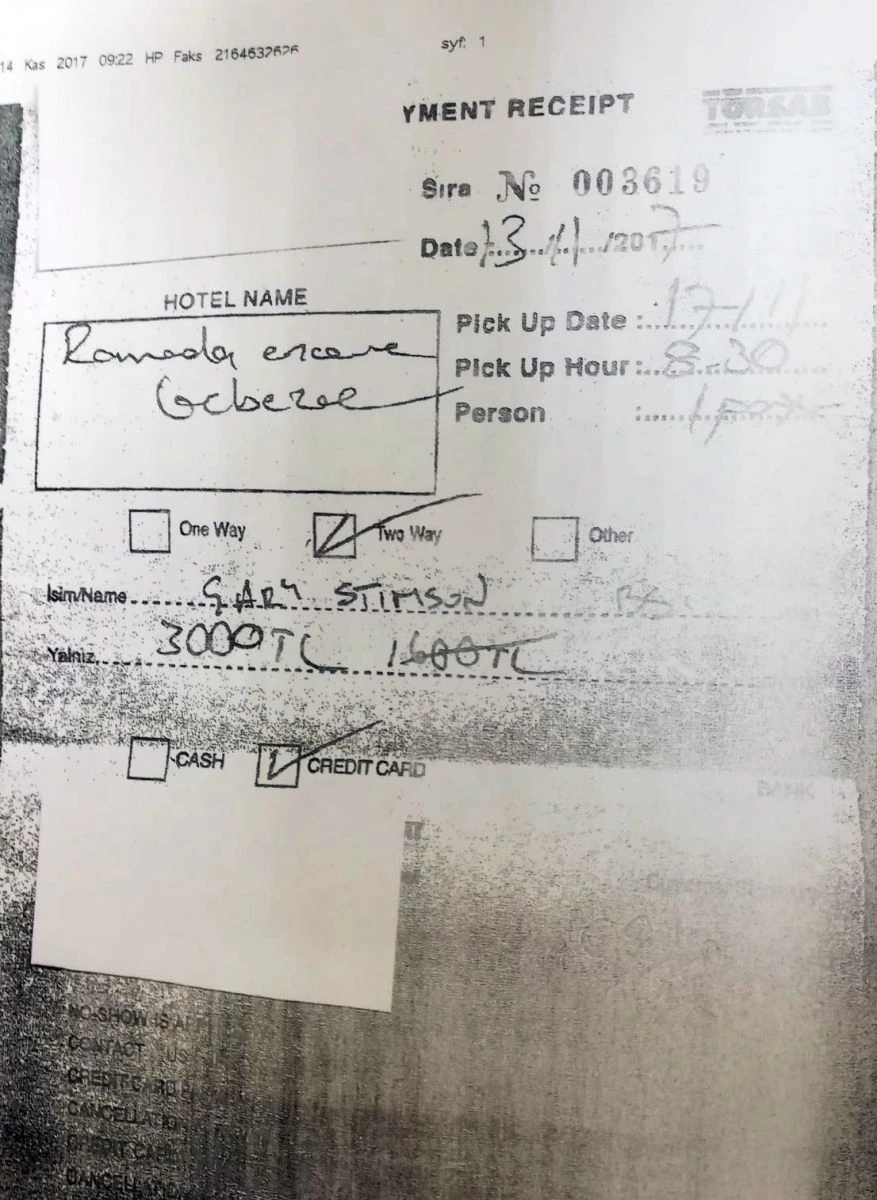 14 Kas 2017 09:22 HP Faks 2164632626
syf: 1
YMENT RECEIPT
TÜRSAB
Sıra № 003619
Date 13/11/2017
HOTEL NAME
Ramada encore
Gebze
Pick Up Date : 17/11
Pick Up Hour : 8:30
Person : 1
One Way
Two Way
Other
İsim/Name GARY STIMSON
Yalnız 3000TL 1600TL
CASH
CREDIT CARD
BANK
NO-SHOW IS
CONTACT US
CREDIT CARD
CANCELLATIO
CREDIT CAR
CANCELLATIO